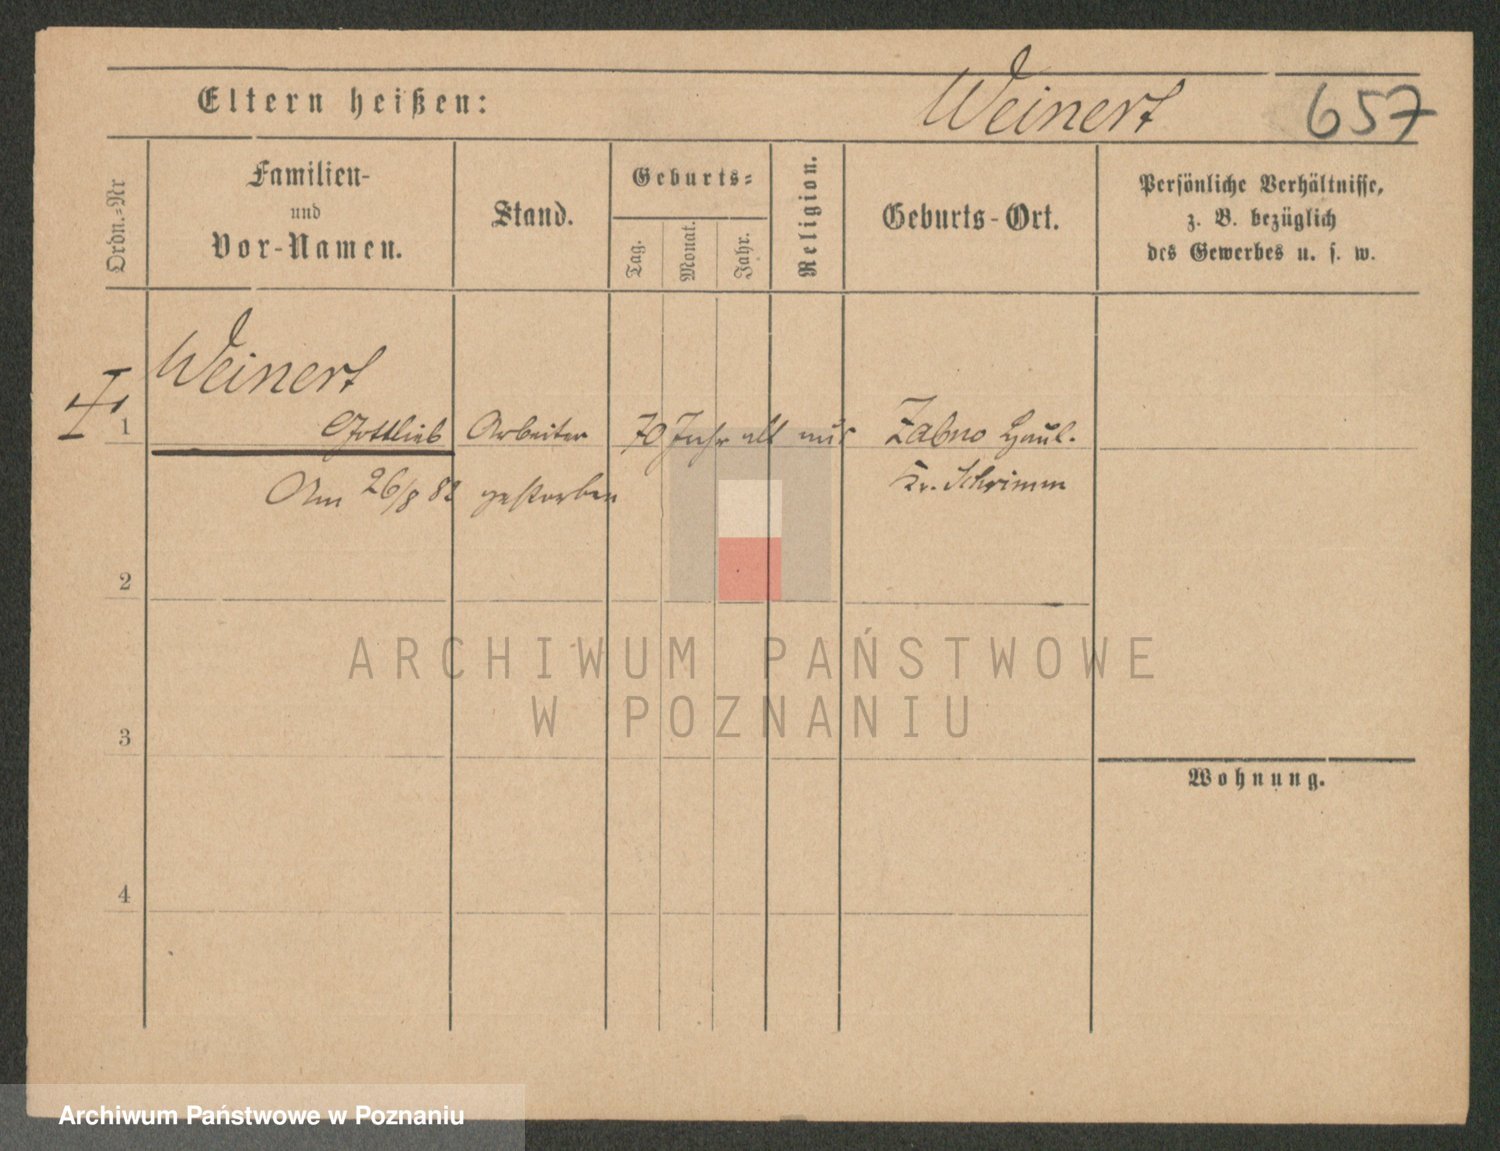 Eltern heißen: Weinert 657
Ordn.=Nr
Familien-
und
Vor-Namen.
Stand.
Geburts=
Tag.
Monat.
Jahr.
Religion.
Geburts-Ort.
Persönliche Verhältnisse,
z. B. bezüglich
des Gewerbes u. s. w.
Weinert
1 Gottlieb Arbeiter 70 Jahr alt Zabno Haul.
Am 26/8 82 gestorben Kr. Schrimm
2
ARCHIWUM PAŃSTWOWE
W POZNANIU
3
Wohnung.
4
Archiwum Państwowe w Poznaniu